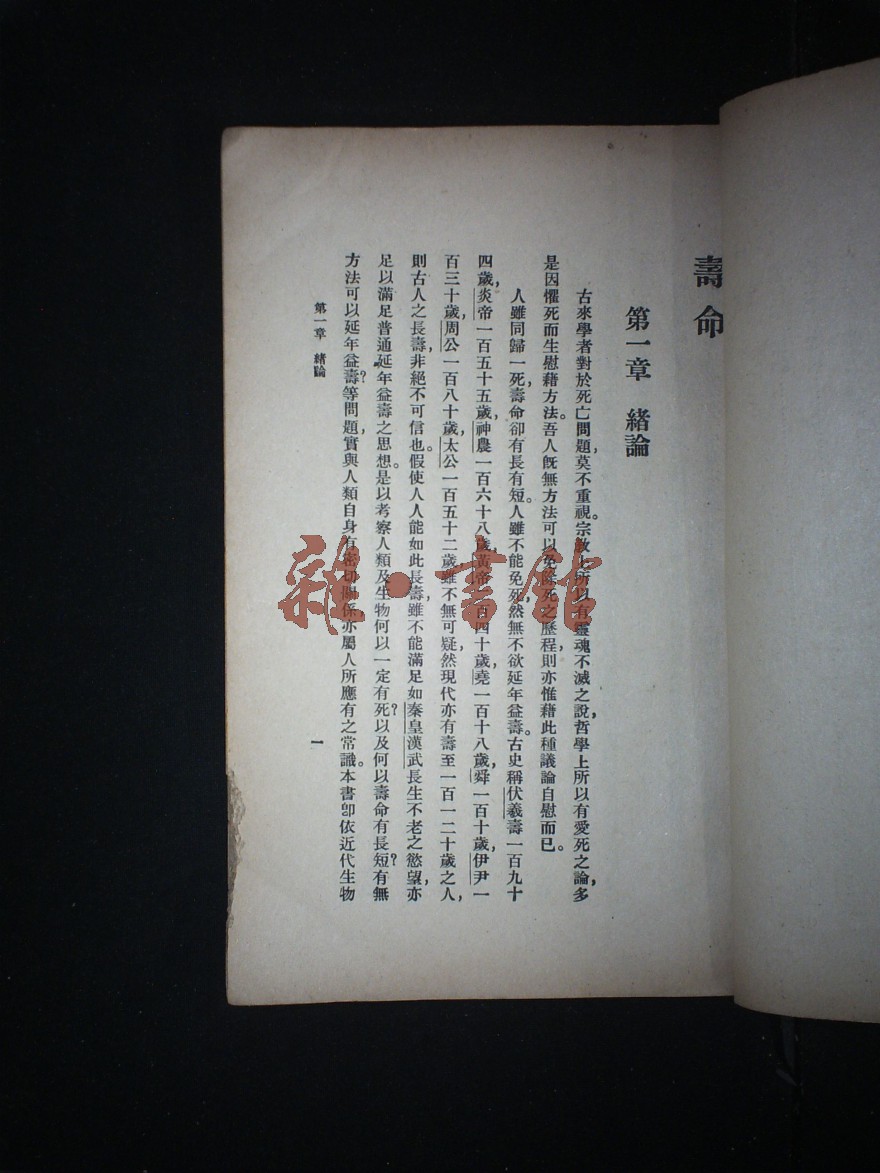 壽命
第一章 緒論
古來學者對於死亡問題，莫不重視。宗教上所以有靈魂不滅之說，哲學上所以有愛死之論，多
是因懼死而生慰藉方法。吾人旣無方法可以免除死之歷程，則亦惟藉此種議論自慰而已。
人雖同歸一死，壽命卻有長有短。人雖不能免死，然無不欲延年益壽。古史稱伏羲壽一百九十
四歲，炎帝一百五十五歲，神農一百六十八歲，黃帝一百四十歲，堯一百十八歲，舜一百十歲，伊尹一
百三十歲，周公一百八十歲，太公一百五十二歲，雖不無可疑，然現代亦有壽至一百一二十歲之人，
則古人之長壽，非絕不可信也。假使人人能如此長壽，雖不能滿足如秦皇漢武長生不老之慾望，亦
足以滿足普通延年益壽之思想。是以考察人類及生物何以一定有死？以及何以壽命有長短？有無
方法可以延年益壽？等問題，實與人類自身有密切關係，亦屬人所應有之常識。本書卽依近代生物
第一章 緒論
一
雜·書館